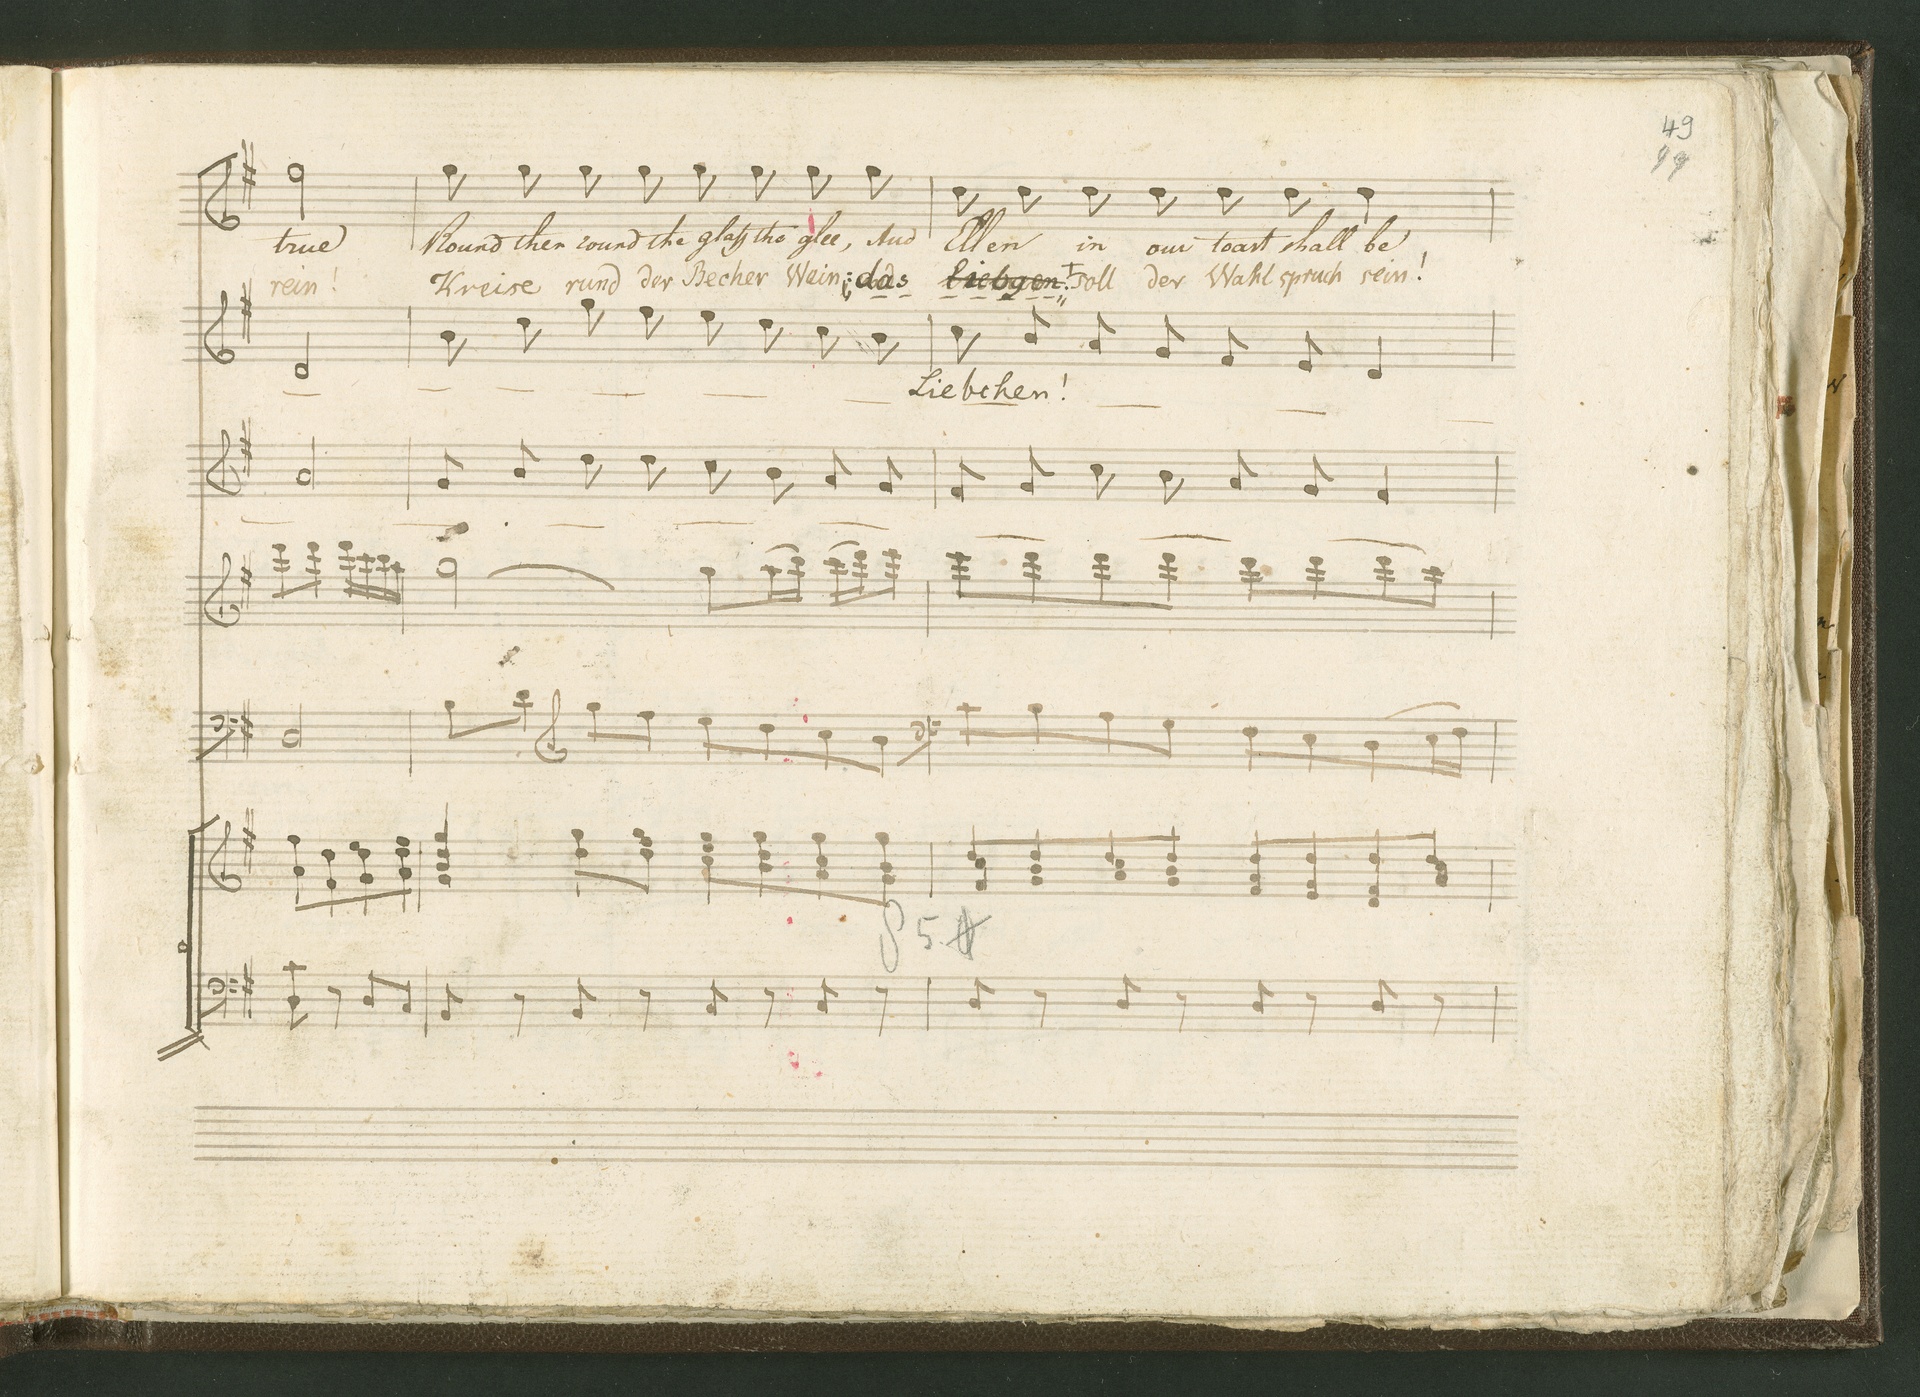 49
99
true Round then round the glass the glee, And Ellen in our toast shall be
rein! Kreise rund der Becher Wein; das Liebgen soll der Wahlspruch sein!
Liebchen!
5.#